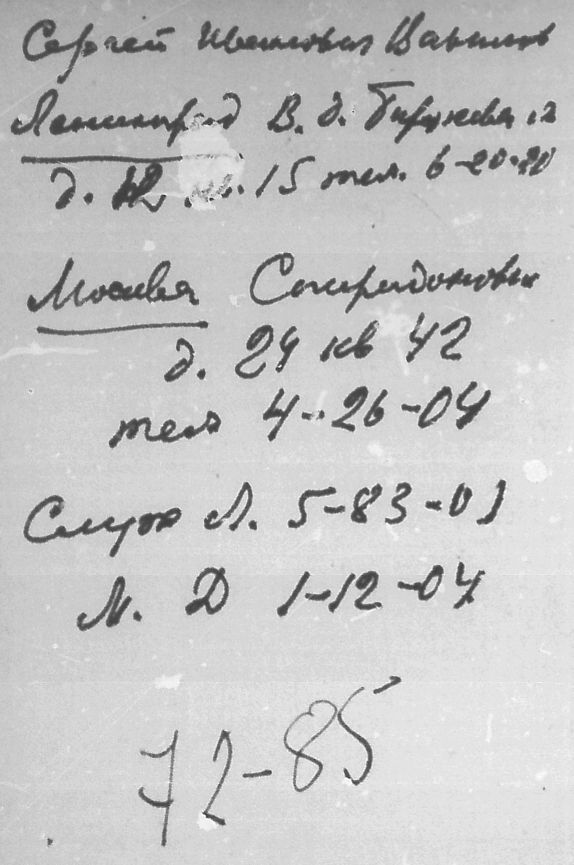 Сергей Иванович Вавилов
Ленинград В. д. Биржевая л
д. 12 кв. 15 тел. 6-20-20
Москва Спиридоновка
д. 24 кв 42
тел 4-26-04
Служ Л. 5-83-01
М. Д 1-12-04
72-85